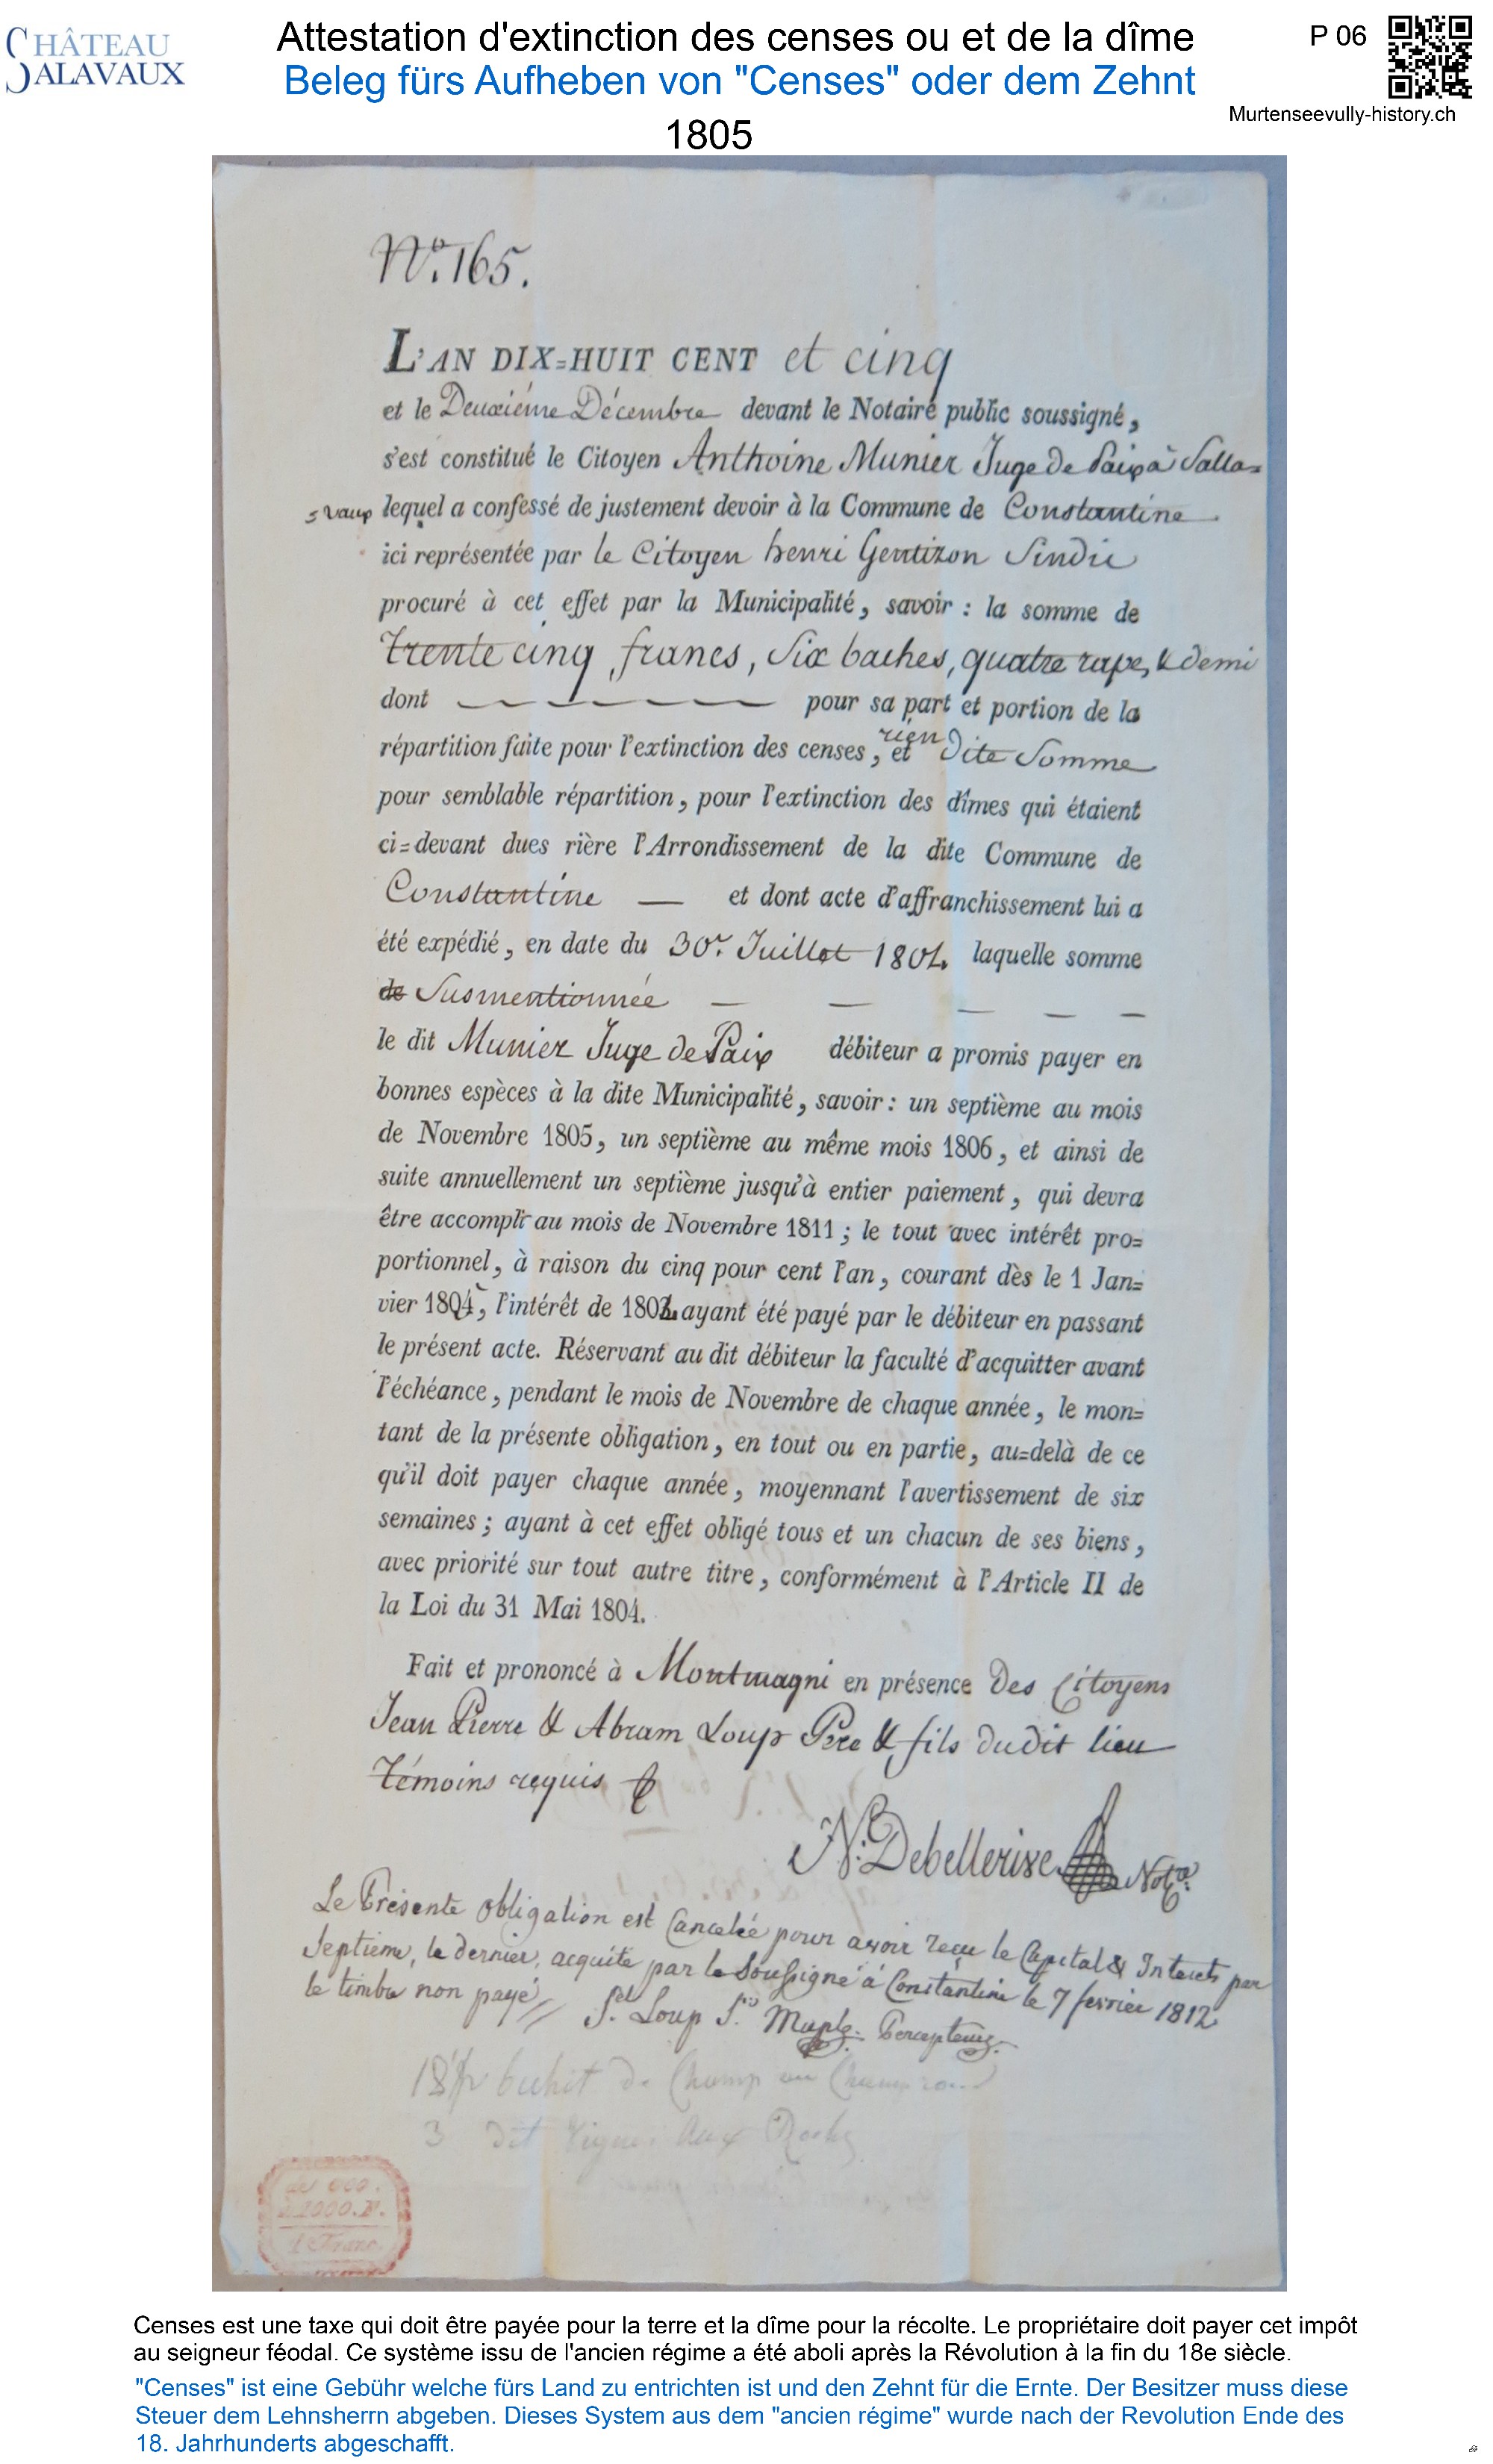 CHÂTEAU
SALAVAUX
Attestation d'extinction des censes ou et de la dîme
Beleg fürs Aufheben von "Censes" oder dem Zehnt
1805
P 06
Murtenseevully-history.ch
N.o 165.
L'AN DIX=HUIT CENT et cinq
et le Deuxiéme Décembre devant le Notaire public soussigné,
s'est constitué le Citoyen Anthoine Munier Juge de Paix à Salla=
=vaux lequel a confessé de justement devoir à la Commune de Constantine
ici représentée par le Citoyen henri Gentizon Sindic
procuré à cet effet par la Municipalité, savoir : la somme de
trente cinq francs, Six baches, quatre rape, & demi
dont pour sa part et portion de la
répartition faite pour l'extinction des censes, rien et Dite Somme
pour semblable répartition, pour l'extinction des dîmes qui étaient
ci=devant dues rière l'Arrondissement de la dite Commune de
Constantine — et dont acte d'affranchissement lui a
été expédié, en date du 30.e Juillet 1804. laquelle somme
de Susmentionnée — — — — —
le dit Munier Juge de Paix débiteur a promis payer en
bonnes espèces à la dite Municipalité, savoir : un septième au mois
de Novembre 1805, un septième au même mois 1806, et ainsi de
suite annuellement un septième jusqu'à entier paiement, qui devra
être accompli au mois de Novembre 1811 ; le tout avec intérêt pro=
portionnel, à raison du cinq pour cent l'an, courant dès le 1 Jan=
vier , l'intérêt de ayant été payé par le débiteur en passant
le présent acte. Réservant au dit débiteur la faculté d'acquitter avant
l'échéance, pendant le mois de Novembre de chaque année, le mon=
tant de la présente obligation, en tout ou en partie, au=delà de ce
qu'il doit payer chaque année, moyennant l'avertissement de six
semaines ; ayant à cet effet obligé tous et un chacun de ses biens,
avec priorité sur tout autre titre, conformément à l'Article II de
la Loi du 31 Mai 1804.
Fait et prononcé à Montmagni en présence Des Citoyens
Jean Pierre & Abram Loup Pere & fils dudit lieu
Témoins requis
N: Debellerive Not.
Le Présente obligation est Cancelée pour avoir reçu le Capital & Interets par
Septieme, le dernier, acquité par le Soussigné à Constantine le 7 fevrier 1812
le timbre non payé S.el Loup Percepteur.
de Champ au
3 dit Vignes Aux
de 600.
à 1000. F.
1 Franc.
Censes est une taxe qui doit être payée pour la terre et la dîme pour la récolte. Le propriétaire doit payer cet impôt
au seigneur féodal. Ce système issu de l'ancien régime a été aboli après la Révolution à la fin du 18e siècle.
"Censes" ist eine Gebühr welche fürs Land zu entrichten ist und den Zehnt für die Ernte. Der Besitzer muss diese
Steuer dem Lehnsherrn abgeben. Dieses System aus dem "ancien régime" wurde nach der Revolution Ende des
18. Jahrhunderts abgeschafft.